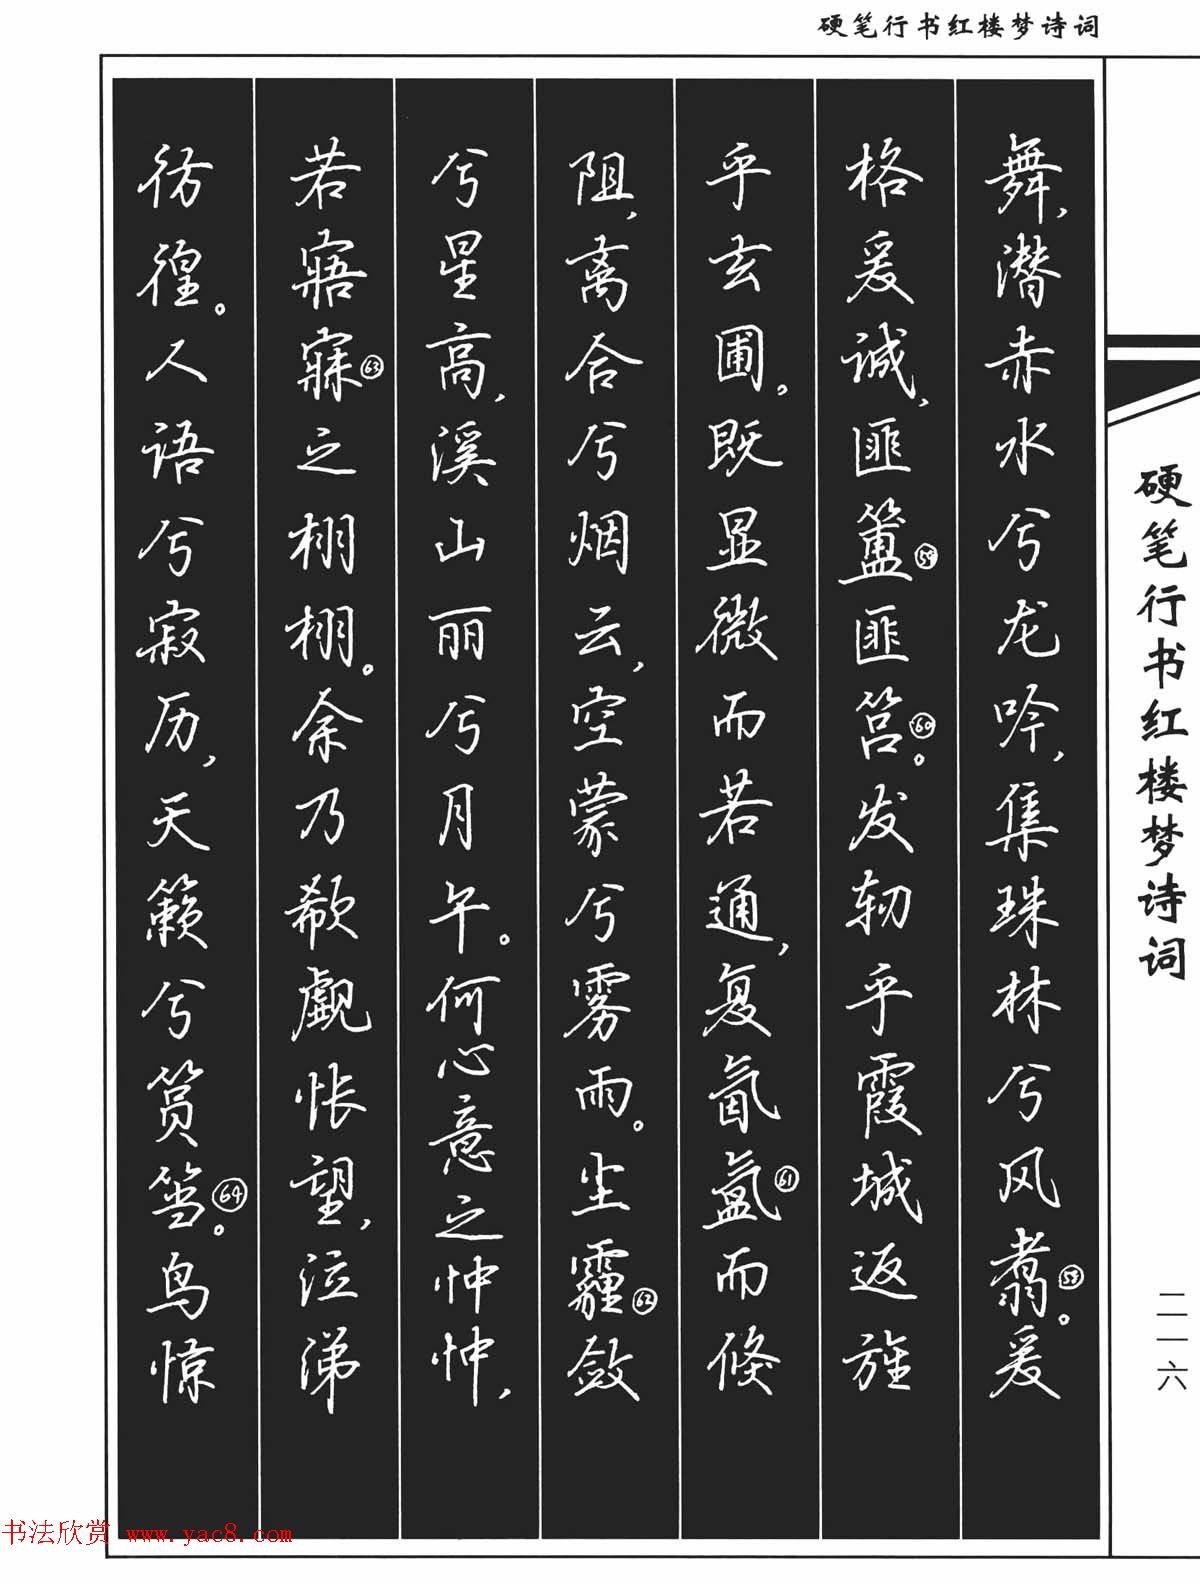 硬笔行书红楼梦诗词
舞，潜赤水兮龙吟，集珠林兮风翥㊽。爰
格爰诚，匪簠㊾匪筥㊿。发轫乎霞城，返旌
乎玄圃。既显微而若通，复氤氲61而倏
阻，离合兮烟云，空蒙兮雾雨。尘霾62敛
兮星高，溪山丽兮月午。何心意之忡忡，
若寤寐63之栩栩。余乃欷觑怅望，泣涕
彷徨。人语兮寂历，天籁兮筼筜64。鸟惊
硬笔行书红楼梦诗词
二一六
书法欣赏 www.yac8.com